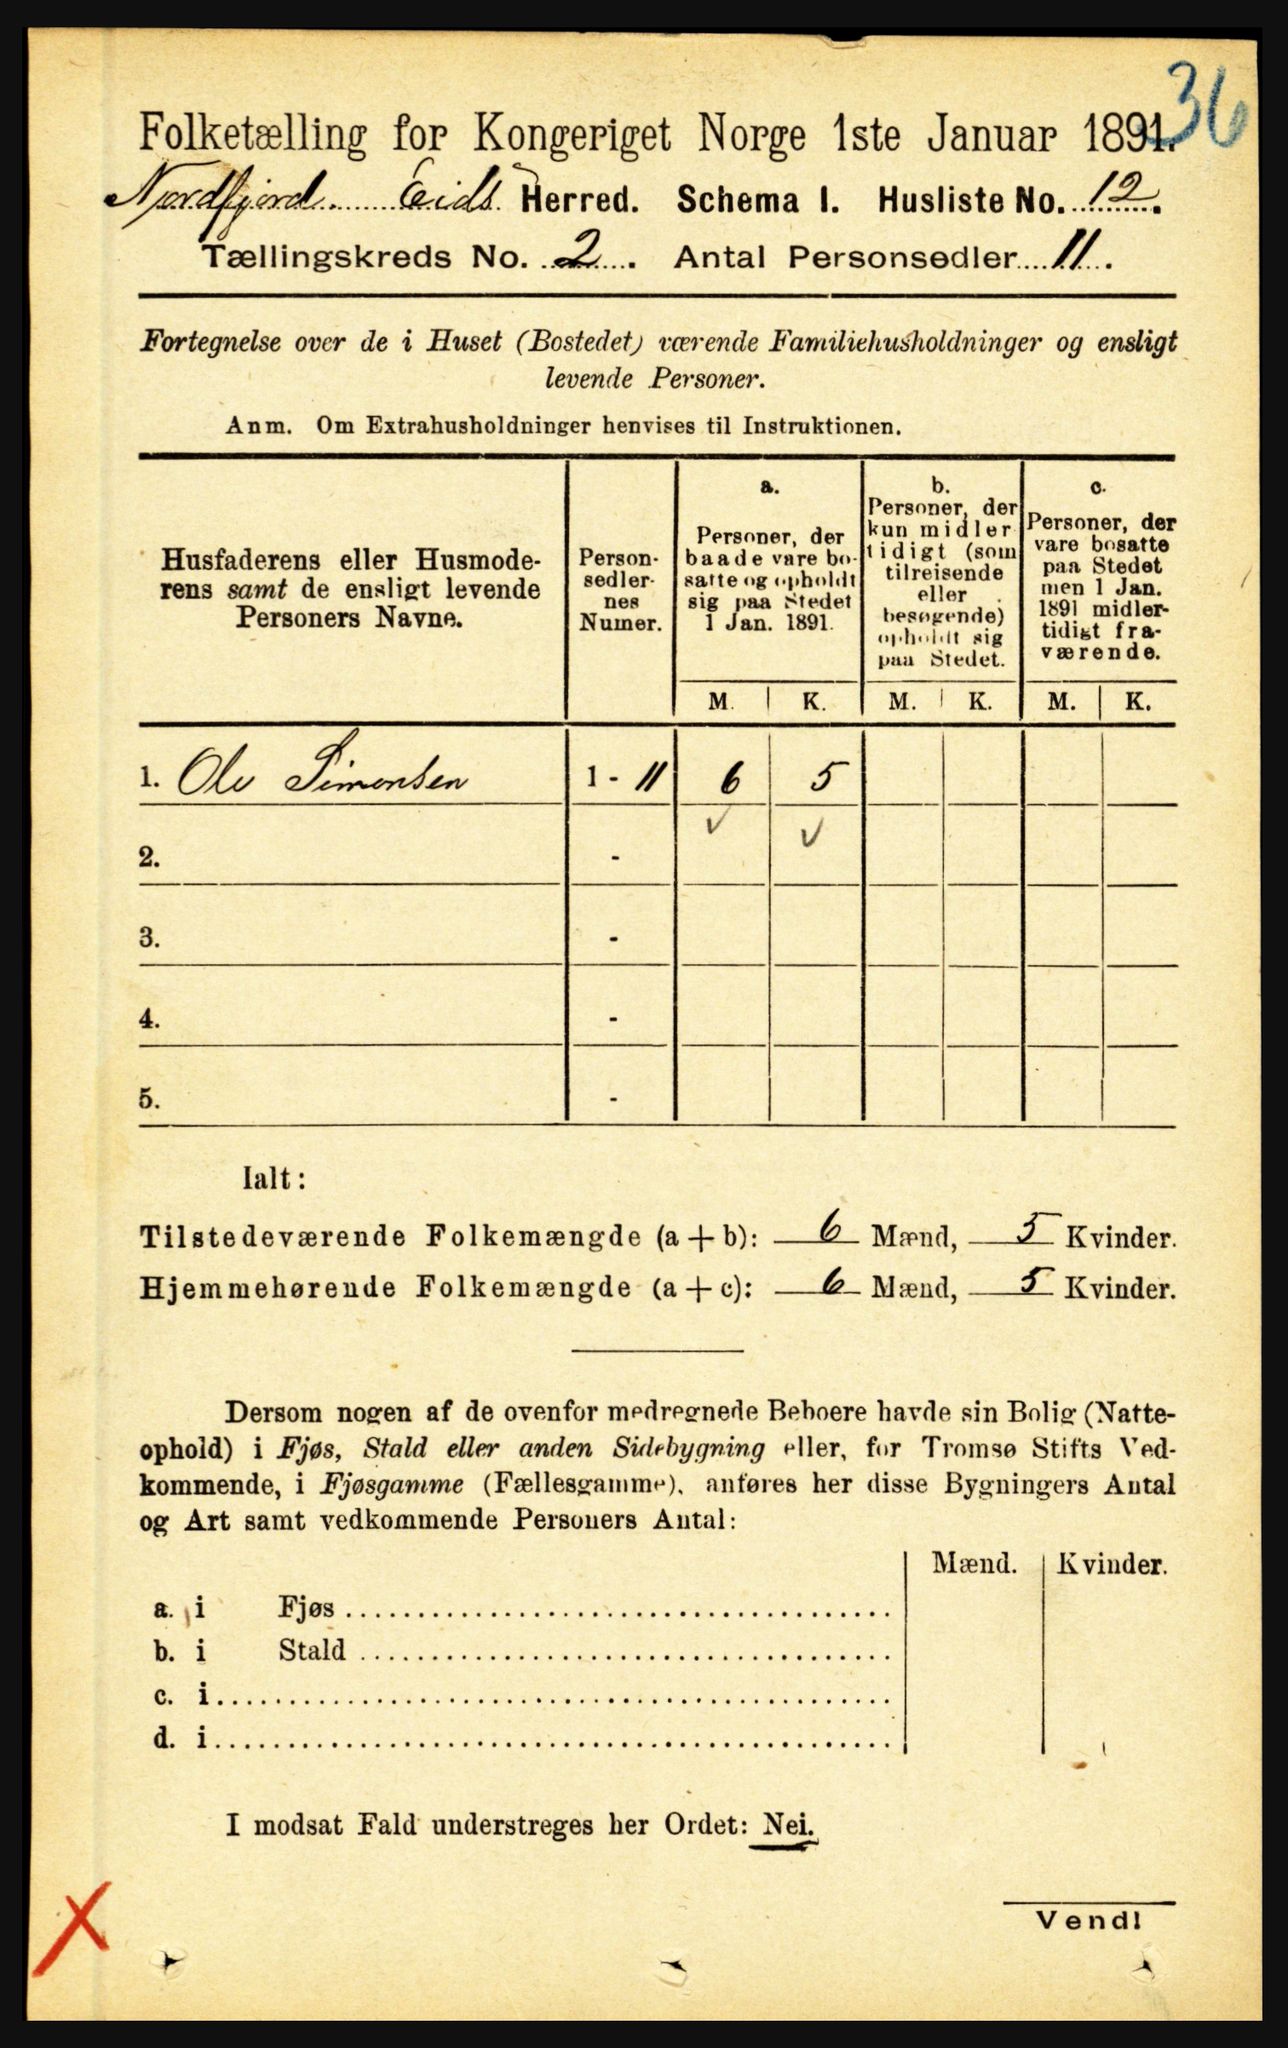 36
Folketælling for Kongeriget Norge 1ste Januar 1891.
Nordfjord Eids Herred. Schema I. Husliste No. 12.
Tællingskreds No. 2. Antal Personsedler 11.
Fortegnelse over de i Huset (Bostedet) værende Familiehusholdninger og ensligt
levende Personer.
Anm. Om Extrahusholdninger henvises til Instruktionen.
Husfaderens eller Husmode-
rens samt de ensligt levende
Personers Navne.
Person-
sedler-
nes
Numer.
a.
Personer, der
baade vare bo-
satte og opholdt
sig paa Stedet
1 Jan. 1891.
b.
Personer, der
kun midler
tidigt (som
tilreisende
eller
besøgende)
opholdt sig
paa Stedet.
c.
Personer, der
vare bosatte
paa Stedet
men 1 Jan.
1891 midler-
tidigt fra-
værende.
M. K. M. K. M. K.
1. Ole Simonsen 1 - 11 6 5
2. -
3. -
4. -
5. -
Ialt:
Tilstedeværende Folkemængde (a+b): 6 Mænd, 5 Kvinder.
Hjemmehørende Folkemængde (a+c): 6 Mænd, 5 Kvinder.
Dersom nogen af de ovenfor medregnede Beboere havde sin Bolig (Natte-
ophold) i Fjøs, Stald eller anden Sidebygning eller, for Tromsø Stifts Ved-
kommende, i Fjøsgamme (Fællesgamme), anføres her disse Bygningers Antal
og Art samt vedkommende Personers Antal:
Mænd. Kvinder.
a. i Fjøs
b. i Stald
c. i
d. i
I modsat Fald understreges her Ordet: Nei.
Vend!